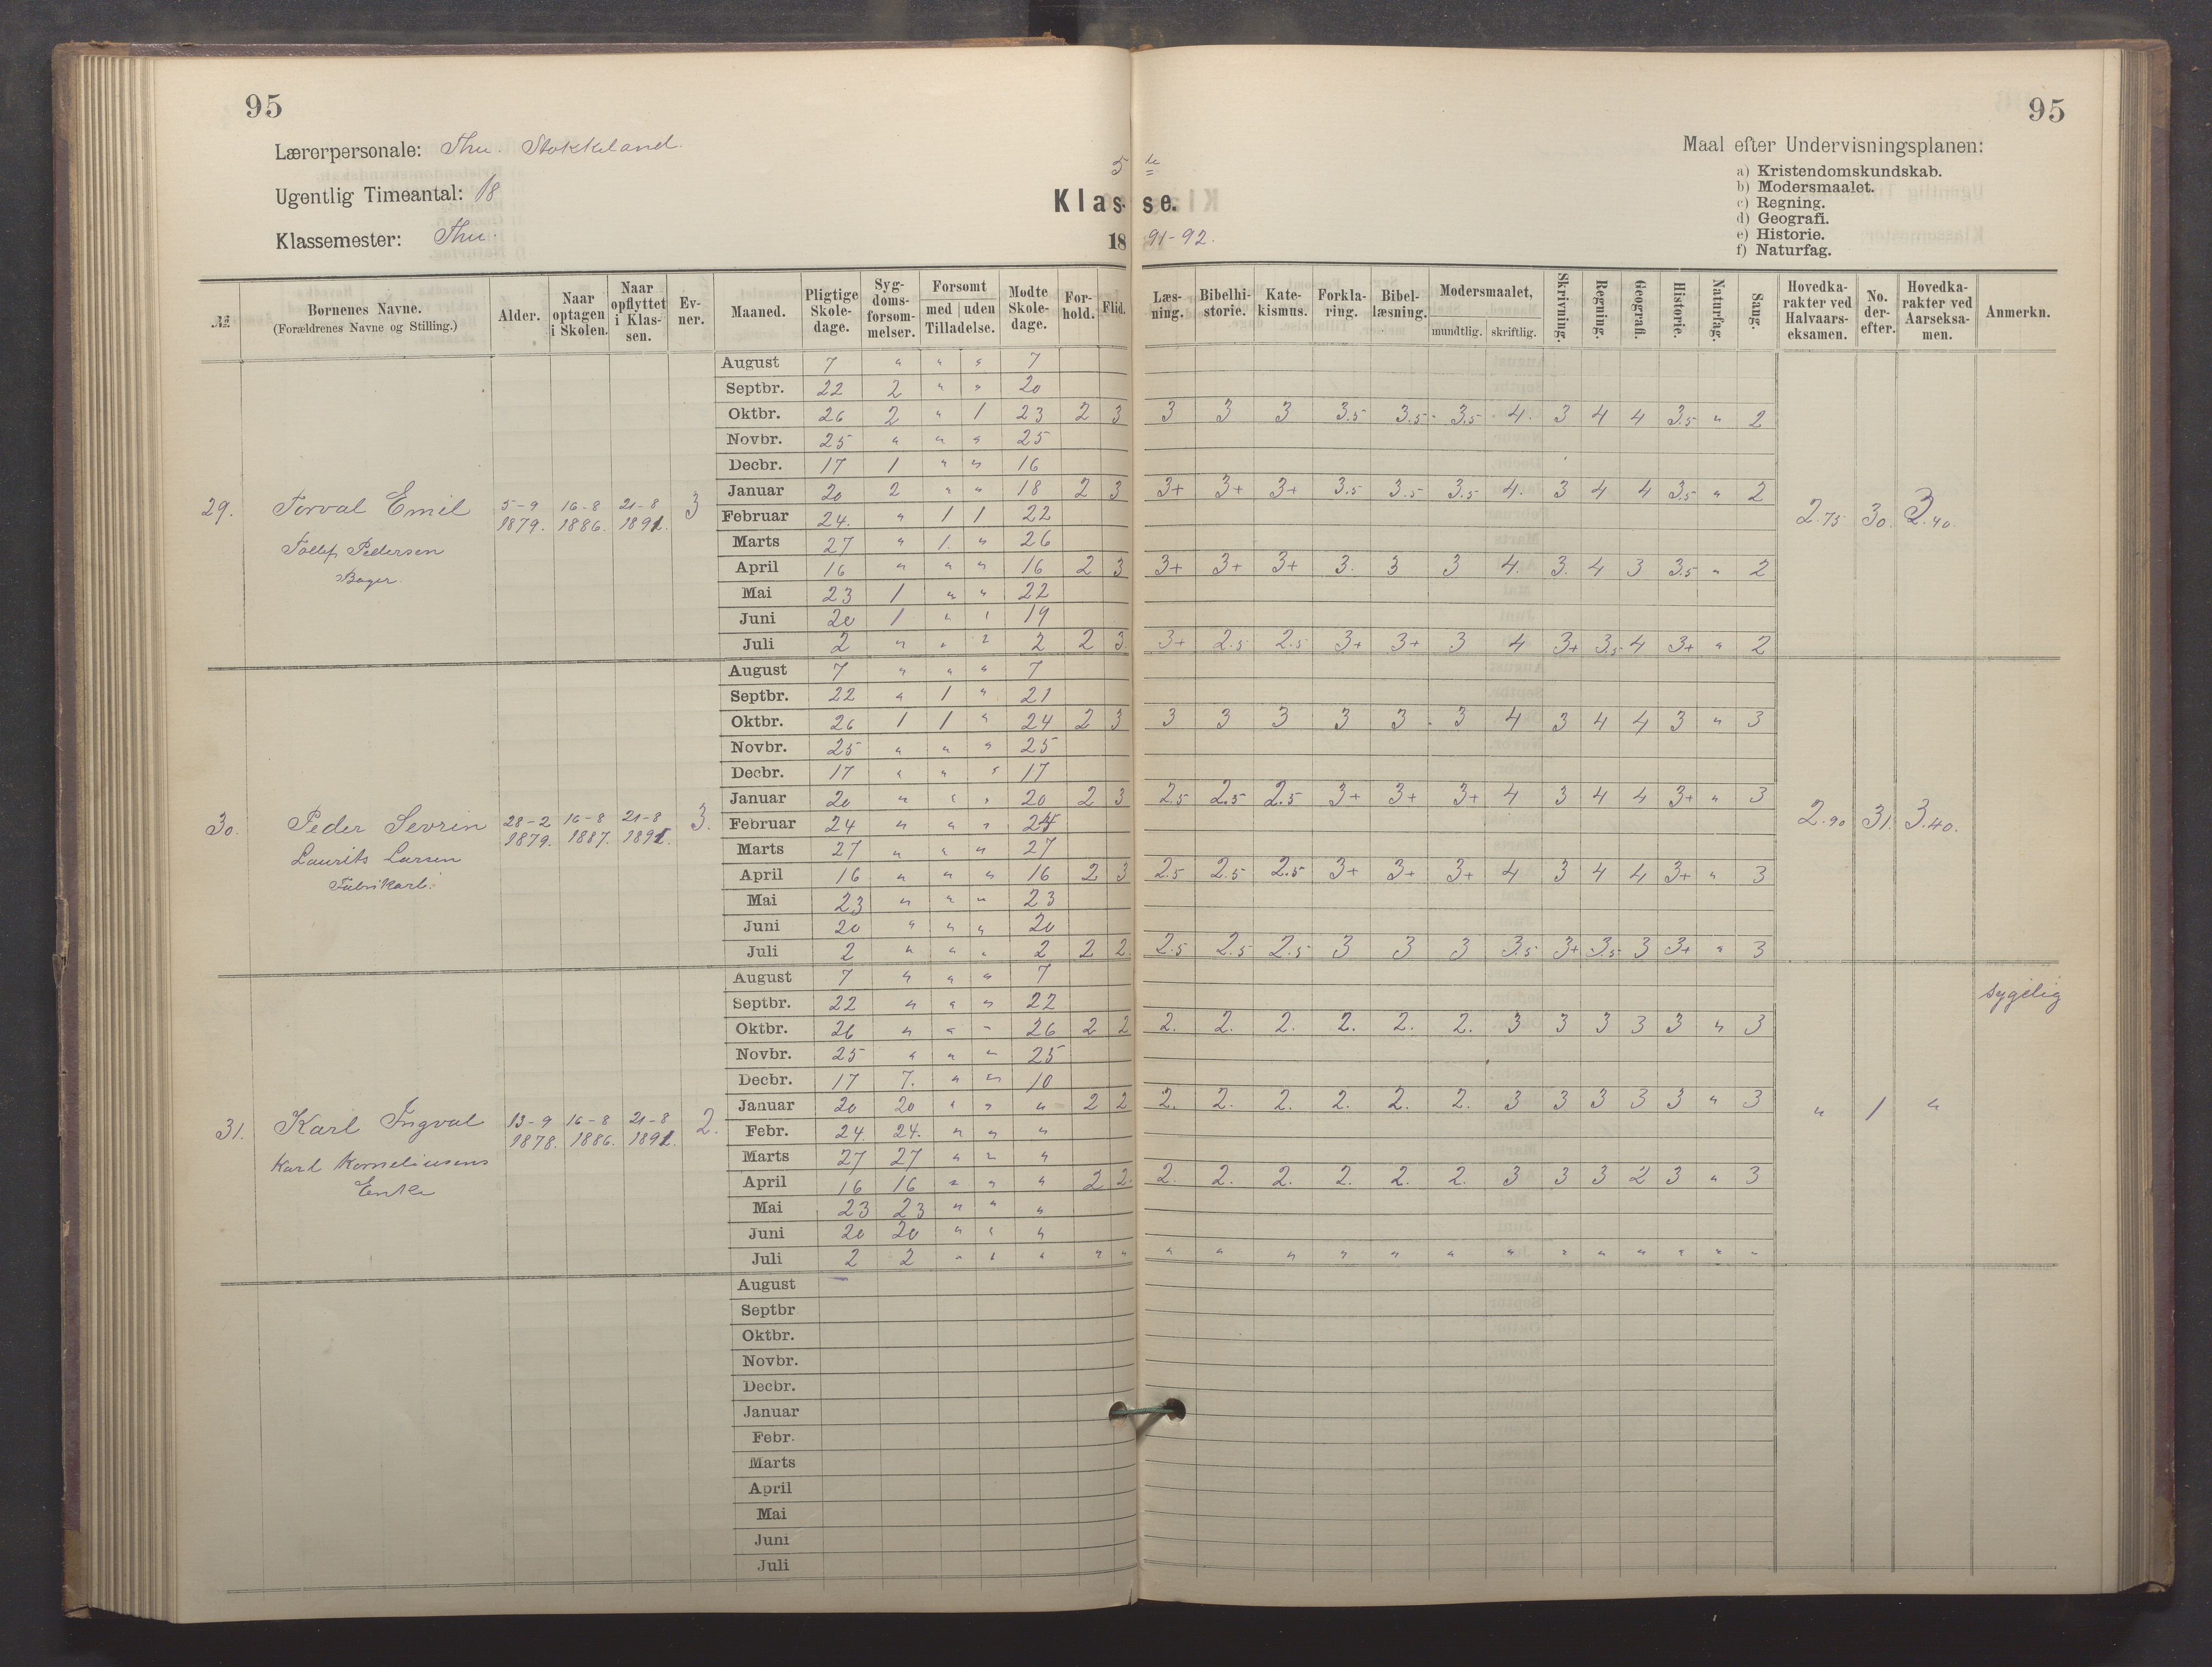 95
95
Lærerpersonale: Thu. Stokkeland.
Ugentlig Timeantal: 18
Klassemester: Thu.
5 te
Klasse.
18 91-92.
Maal efter Undervisningsplanen:
a) Kristendomskundskab.
b) Modersmaalet.
c) Regning.
d) Geografi.
e) Historie.
f) Naturfag.
№ | Børnenes Navne. (Forældrenes Navne og Stilling.) | Alder. | Naar optagen i Skolen. | Naar opflyttet i Klassen. | Evner. | Maaned. | Pligtige Skoledage. | Sygdomsforsømmelser. | Forsømt med uden Tilladelse. | Mødte Skoledage. | Forhold. | Flid. | Læsning. | Bibelhistorie. | Katekismus. | Forklaring. | Bibellæsning. | Modersmaalet, mundtlig. skriftlig. | Skrivning. | Regning. | Geografi. | Historie. | Naturfag. | Sang. | Hovedkarakter ved Halvaarseksamen. | No. derefter. | Hovedkarakter ved Aarseksamen. | Anmerkn.
29. Torval Emil
Pedersen
Bager.
5-9 1879. 16-8 1886. 21-8 1891. 3
August 7 " " " 7
Septbr. 22 2 " " 20
Oktbr. 26 2 " 1 23 2 3 3 3 3 3.5 3.5 3.5 4. 3 4 4 3.5 " 2
Novbr. 25 " " " 25
Decbr. 17 1 " " 16
Januar 20 2 " " 18 2 3 3+ 3+ 3+ 3.5 3.5 3.5 4. 3 4 4 3.5 " 2
Februar 24. " 1 1 22
Marts 27 " 1. " 26
April 16 " " " 16 2 3 3+ 3+ 3+ 3. 3 3 4. 3. 4 3 3.5 " 2
Mai 23 1 " " 22
Juni 20 1 " " 19
Juli 2 " " " 2 2 3. 3+ 2.5 2.5 3+ 3+ 3 4 3+ 3.5 4 3+ " 2
2.75 30. 3.40.
30. Peder Sevrin
Laurits Larsen
28-2 1879. 16-8 1887. 21-8 1891. 3.
August 7 " " " 7
Septbr. 22 " 1 " 21
Oktbr. 26 1 1 " 24 2 3 3 3 3 3 3 3 4 3 4 4 3 " 3
Novbr. 25 " " " 25
Decbr. 17 " " " 17
Januar 20 " " " 20 2 3 2.5 2.5 2.5 3+ 3+ 3+ 4 3 4 4 3+ " 3
Februar 24 " " " 24
Marts 27 " " " 27
April 16 " " " 16 2 3 2.5 2.5 2.5 3+ 3+ 3+ 4 3 4 4 3+ " 3
Mai 23 " " " 23
Juni 20 " " " 20
Juli 2 " " " 2 2 2. 2.5 2.5 2.5 3 3 3 3.5 3+ 3.5 3 3+ " 3
2.90 31. 3.40.
31. Karl Ingval
Karl Korneliusens
Enke
13-9 1878. 16-8 1886. 21-8 1891. 2.
August 7 " " " 7
Septbr. 22 " " " 22
Oktbr. 26 " " " 26 2 2 2. 2. 2. 2. 2. 2. 3 3 3 3 3 " 3
Novbr. 25 " " " 25
Decbr. 17 7. " " 10
Januar 20 20 " " " 2 2 2. 2. 2. 2. 2. 2. 3 3 3 3 3 " 3
Febr. 24. 24. " " "
Marts 27 27 " " "
April 16 16 " " " 2 2. 2. 2. 2. 2. 2. 2. 3 3 3 2 3 " 3
Mai 23 23 " " "
Juni 20 20 " " "
Juli 2 2 " " " " " " " " " " " " " " " " " "
" 1 " sygelig
August
Septbr
Oktbr.
Novbr.
Decbr.
Januar
Febr.
Marts
April
Mai
Juni
Juli